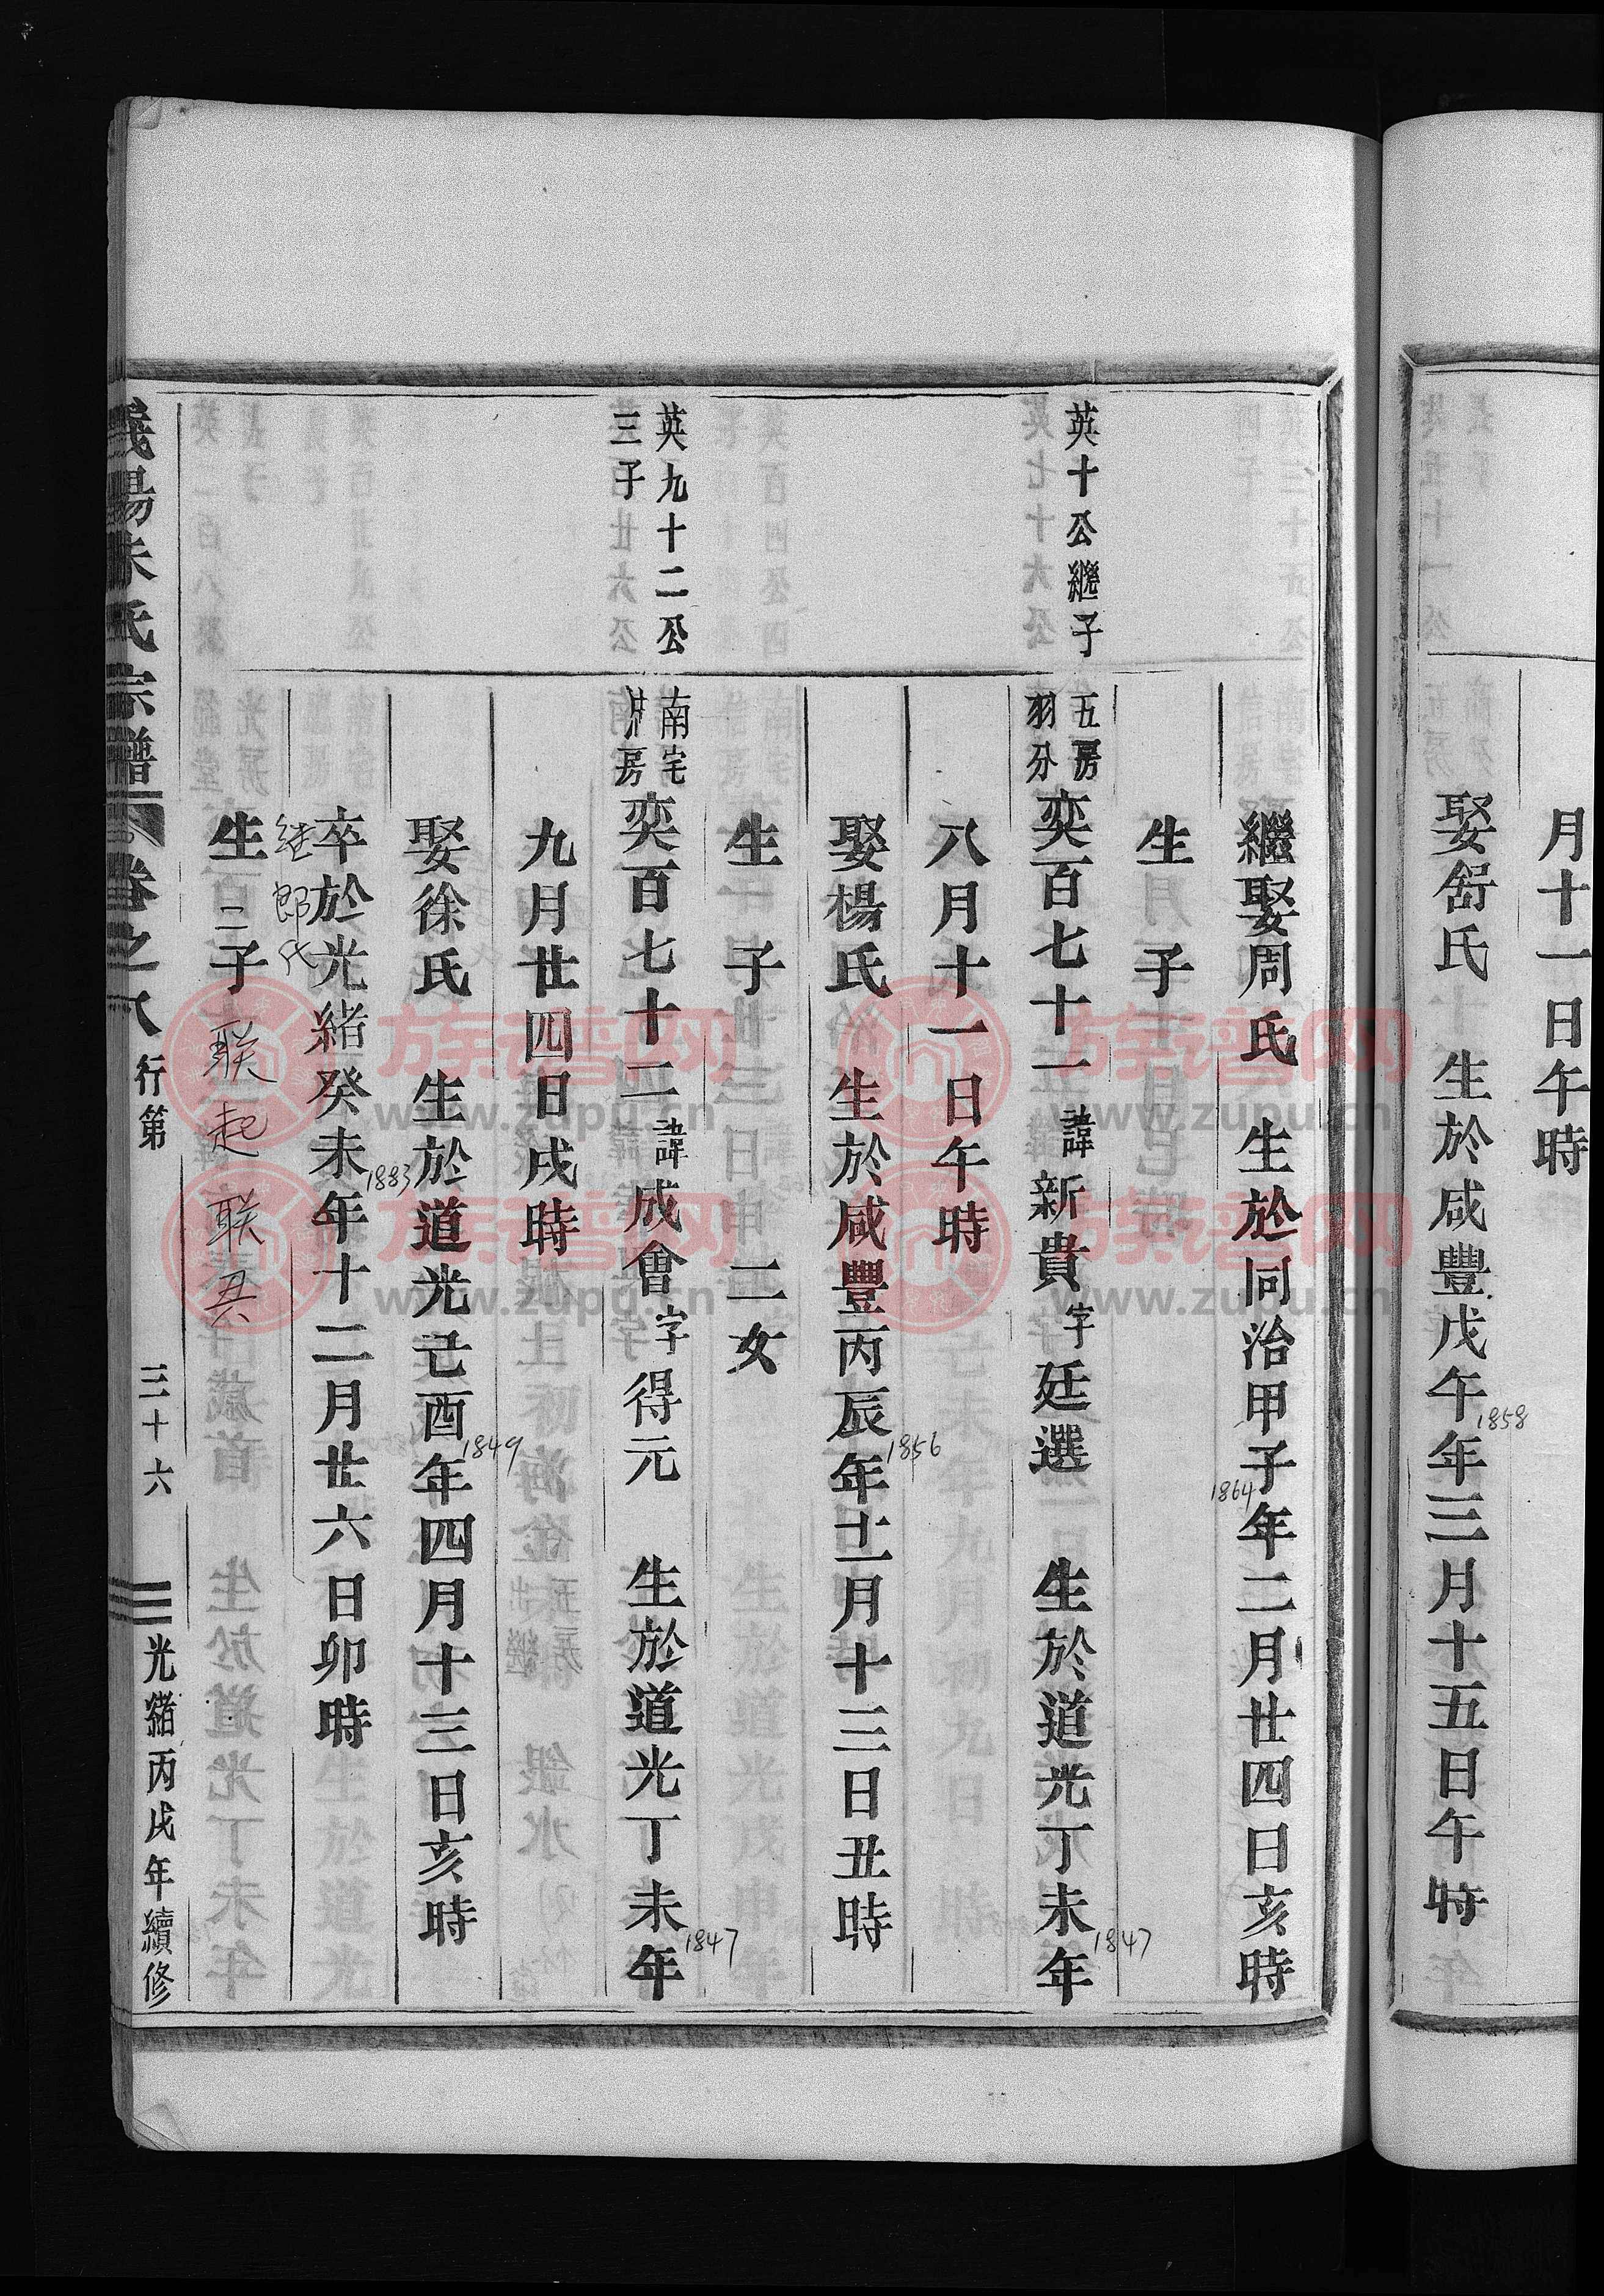 月十一日午時
娶舒氏 生於咸豐戊午年三月十五日午時
1858
繼娶周氏 生於同治甲子年二月廿四日亥時
1864
生 子
英十公繼子
五房
羽分
奕百七十一 諱新貴 字廷選 生於道光丁未年
1847
八月十一日午時
娶楊氏 生於咸豐丙辰年十二月十三日丑時
1856
生 子 二女
英九十二公
三子
南宅
房
奕百七十二 諱成會 字得元 生於道光丁未年
1847
九月廿四日戌時
娶徐氏 生於道光己酉年四月十三日亥時
1849
卒於光緒癸未年十二月廿六日卯時
1883
继郎氏
生二子 联起 联
義陽朱氏宗譜 卷之八 行第 三十六 光緒丙戌年續修
族谱网
www.zupu.cn
族谱网
www.zupu.cn
族谱网
www.zupu.cn
族谱网
www.zupu.cn